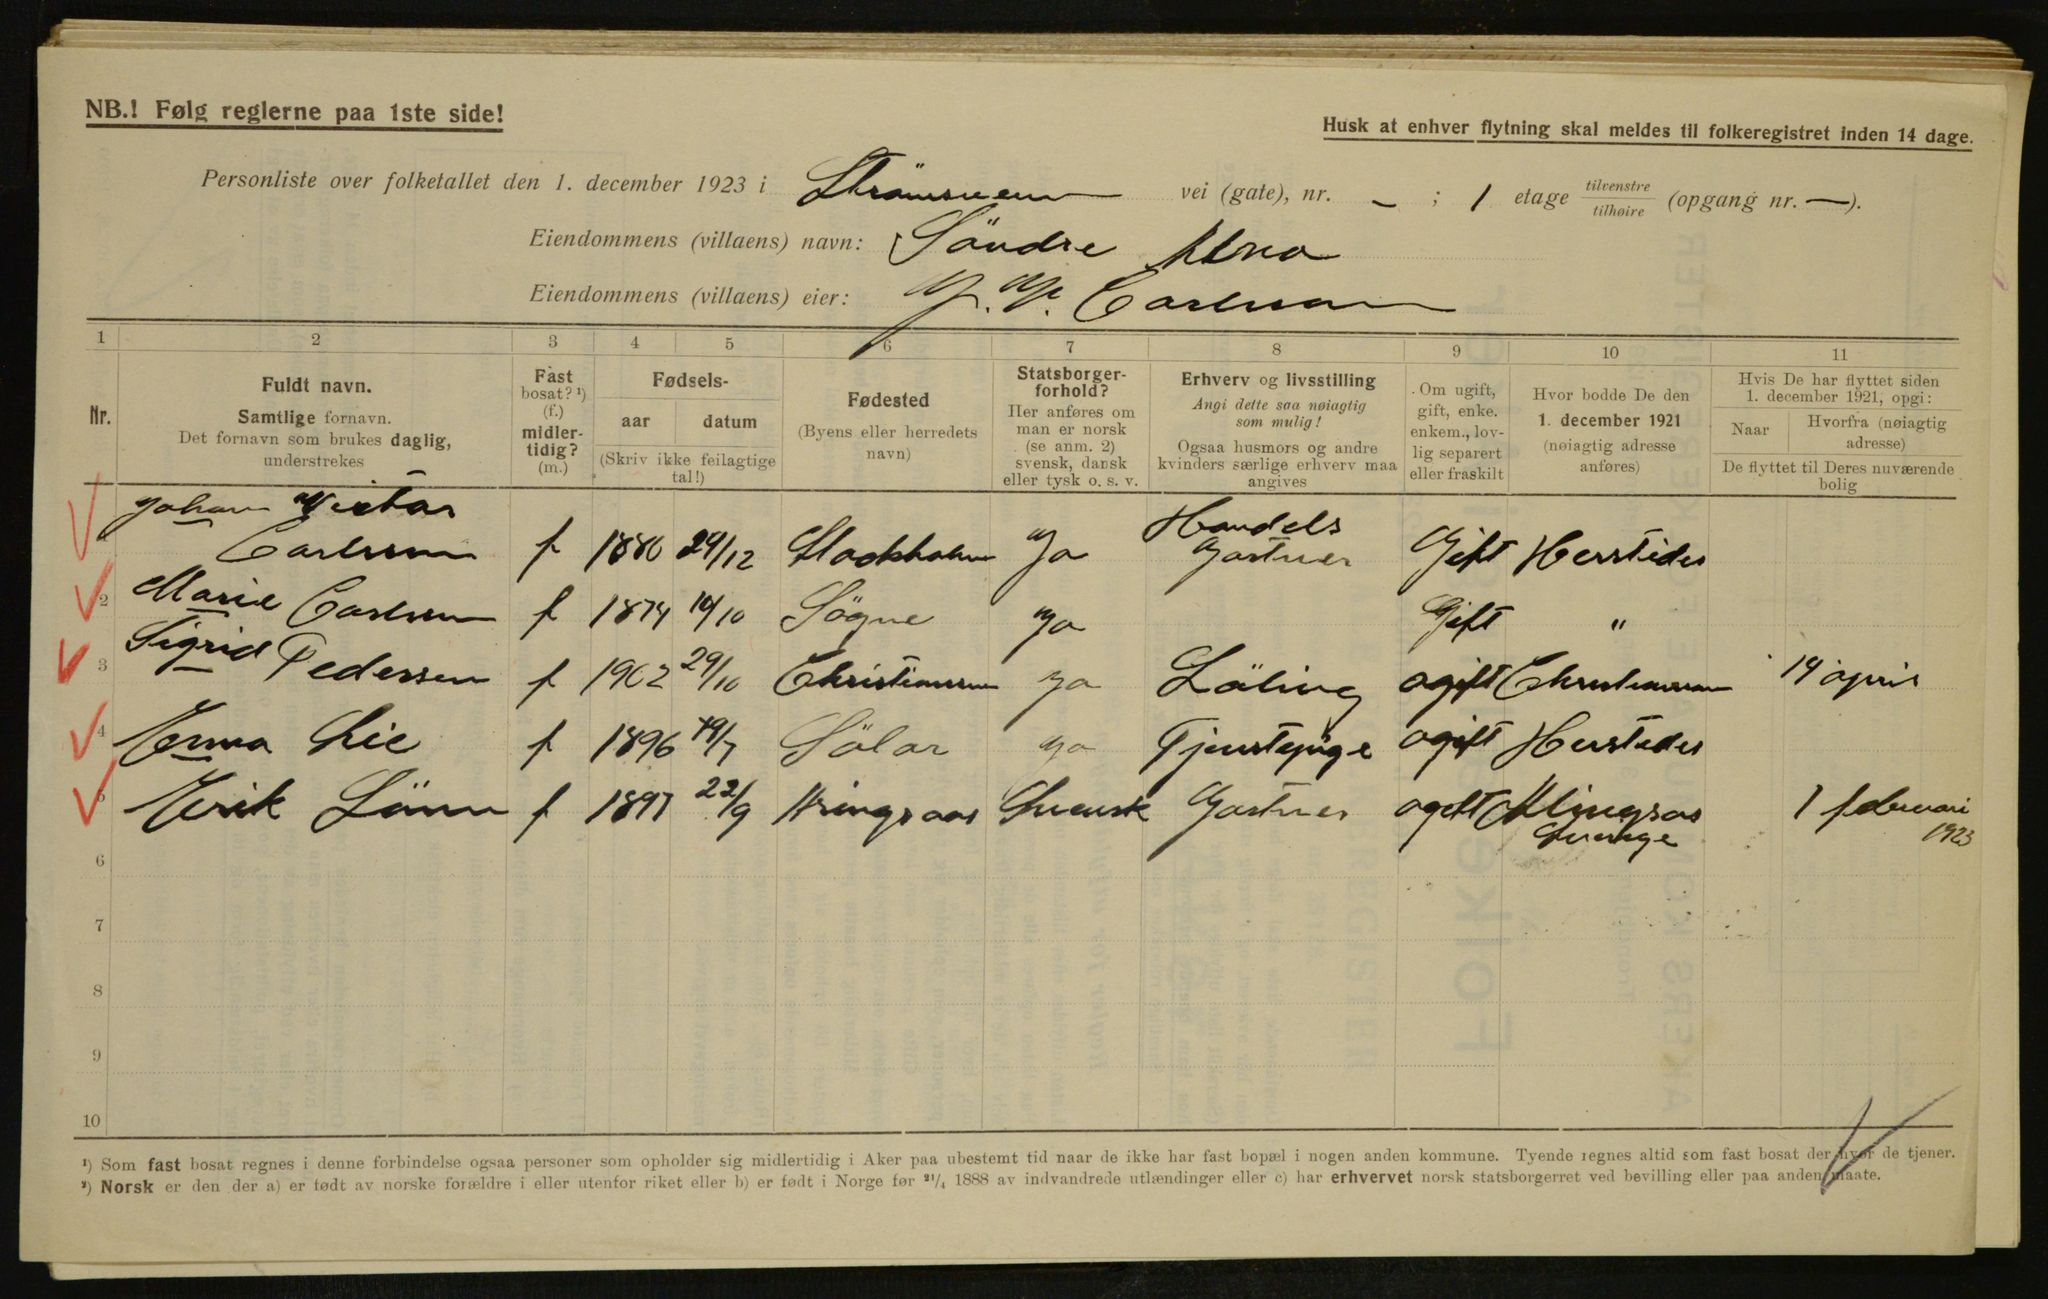 NB.! Følg reglerne paa 1ste side!
Husk at enhver flytning skal meldes til folkeregistret inden 14 dage.
Personliste over folketallet den 1. december 1923 i Strömsveien vei (gate), nr. – ; 1 etage tilvenstre tilhøire (opgang nr. —).
Eiendommens (villaens) navn: Söndre Alna
Eiendommens (villaens) eier: Carlsson
1 2 3 4 5 6 7 8 9 10 11
Nr.
Fuldt navn.
Samtlige fornavn.
Det fornavn som brukes daglig,
understrekes
Fast
bosat? ¹)
(f.)
midler-
tidig?
(m.)
Fødsels-
aar datum
(Skriv ikke feilagtige
tal!)
Fødested
(Byens eller herredets
navn)
Statsborger-
forhold?
Her anføres om
man er norsk
(se anm. 2)
svensk, dansk
eller tysk o. s. v.
Erhverv og livsstilling
Angi dette saa nøiagtig
som mulig!
Ogsaa husmors og andre
kvinders særlige erhverv maa
angives
Om ugift,
gift, enke.
enkem., lov-
lig separert
eller fraskilt
Hvor bodde De den
1. december 1921
(nøiagtig adresse
anføres)
Hvis De har flyttet siden
1. december 1921, opgi:
Naar Hvorfra (nøiagtig
adresse)
De flyttet til Deres nuværende
bolig
Johan Victor Handels
Carlsson f 1880 29/12 Stockholm Ja Gartner Gift Herstedes
2 Marie Carlsson f 1874 10/10 Sögne Ja Gift "
3 Sigrid Pedersen f 1902 29/10 Christianssun ja Läling ogift Christianssun 14 april
4 Erna Lie f 1896 19/7 Sölör ja Tjenstepige ogift Herstedes
5 Erik Lönn f 1897 22/9 Svensk Gartner ogift Alingsos 1 februari
Sverige 1923
6
7
8
9
10
¹) Som fast bosat regnes i denne forbindelse ogsaa personer som opholder sig midlertidig i Aker paa ubestemt tid naar de ikke har fast bopæl i nogen anden kommune. Tyende regnes altid som fast bosat der hvor de tjener.
²) Norsk er den der a) er født av norske forældre i eller utenfor riket eller b) er født i Norge før ²¹/₄ 1888 av indvandrede utlændinger eller c) har erhvervet norsk statsborgerret ved bevilling eller paa anden maate.